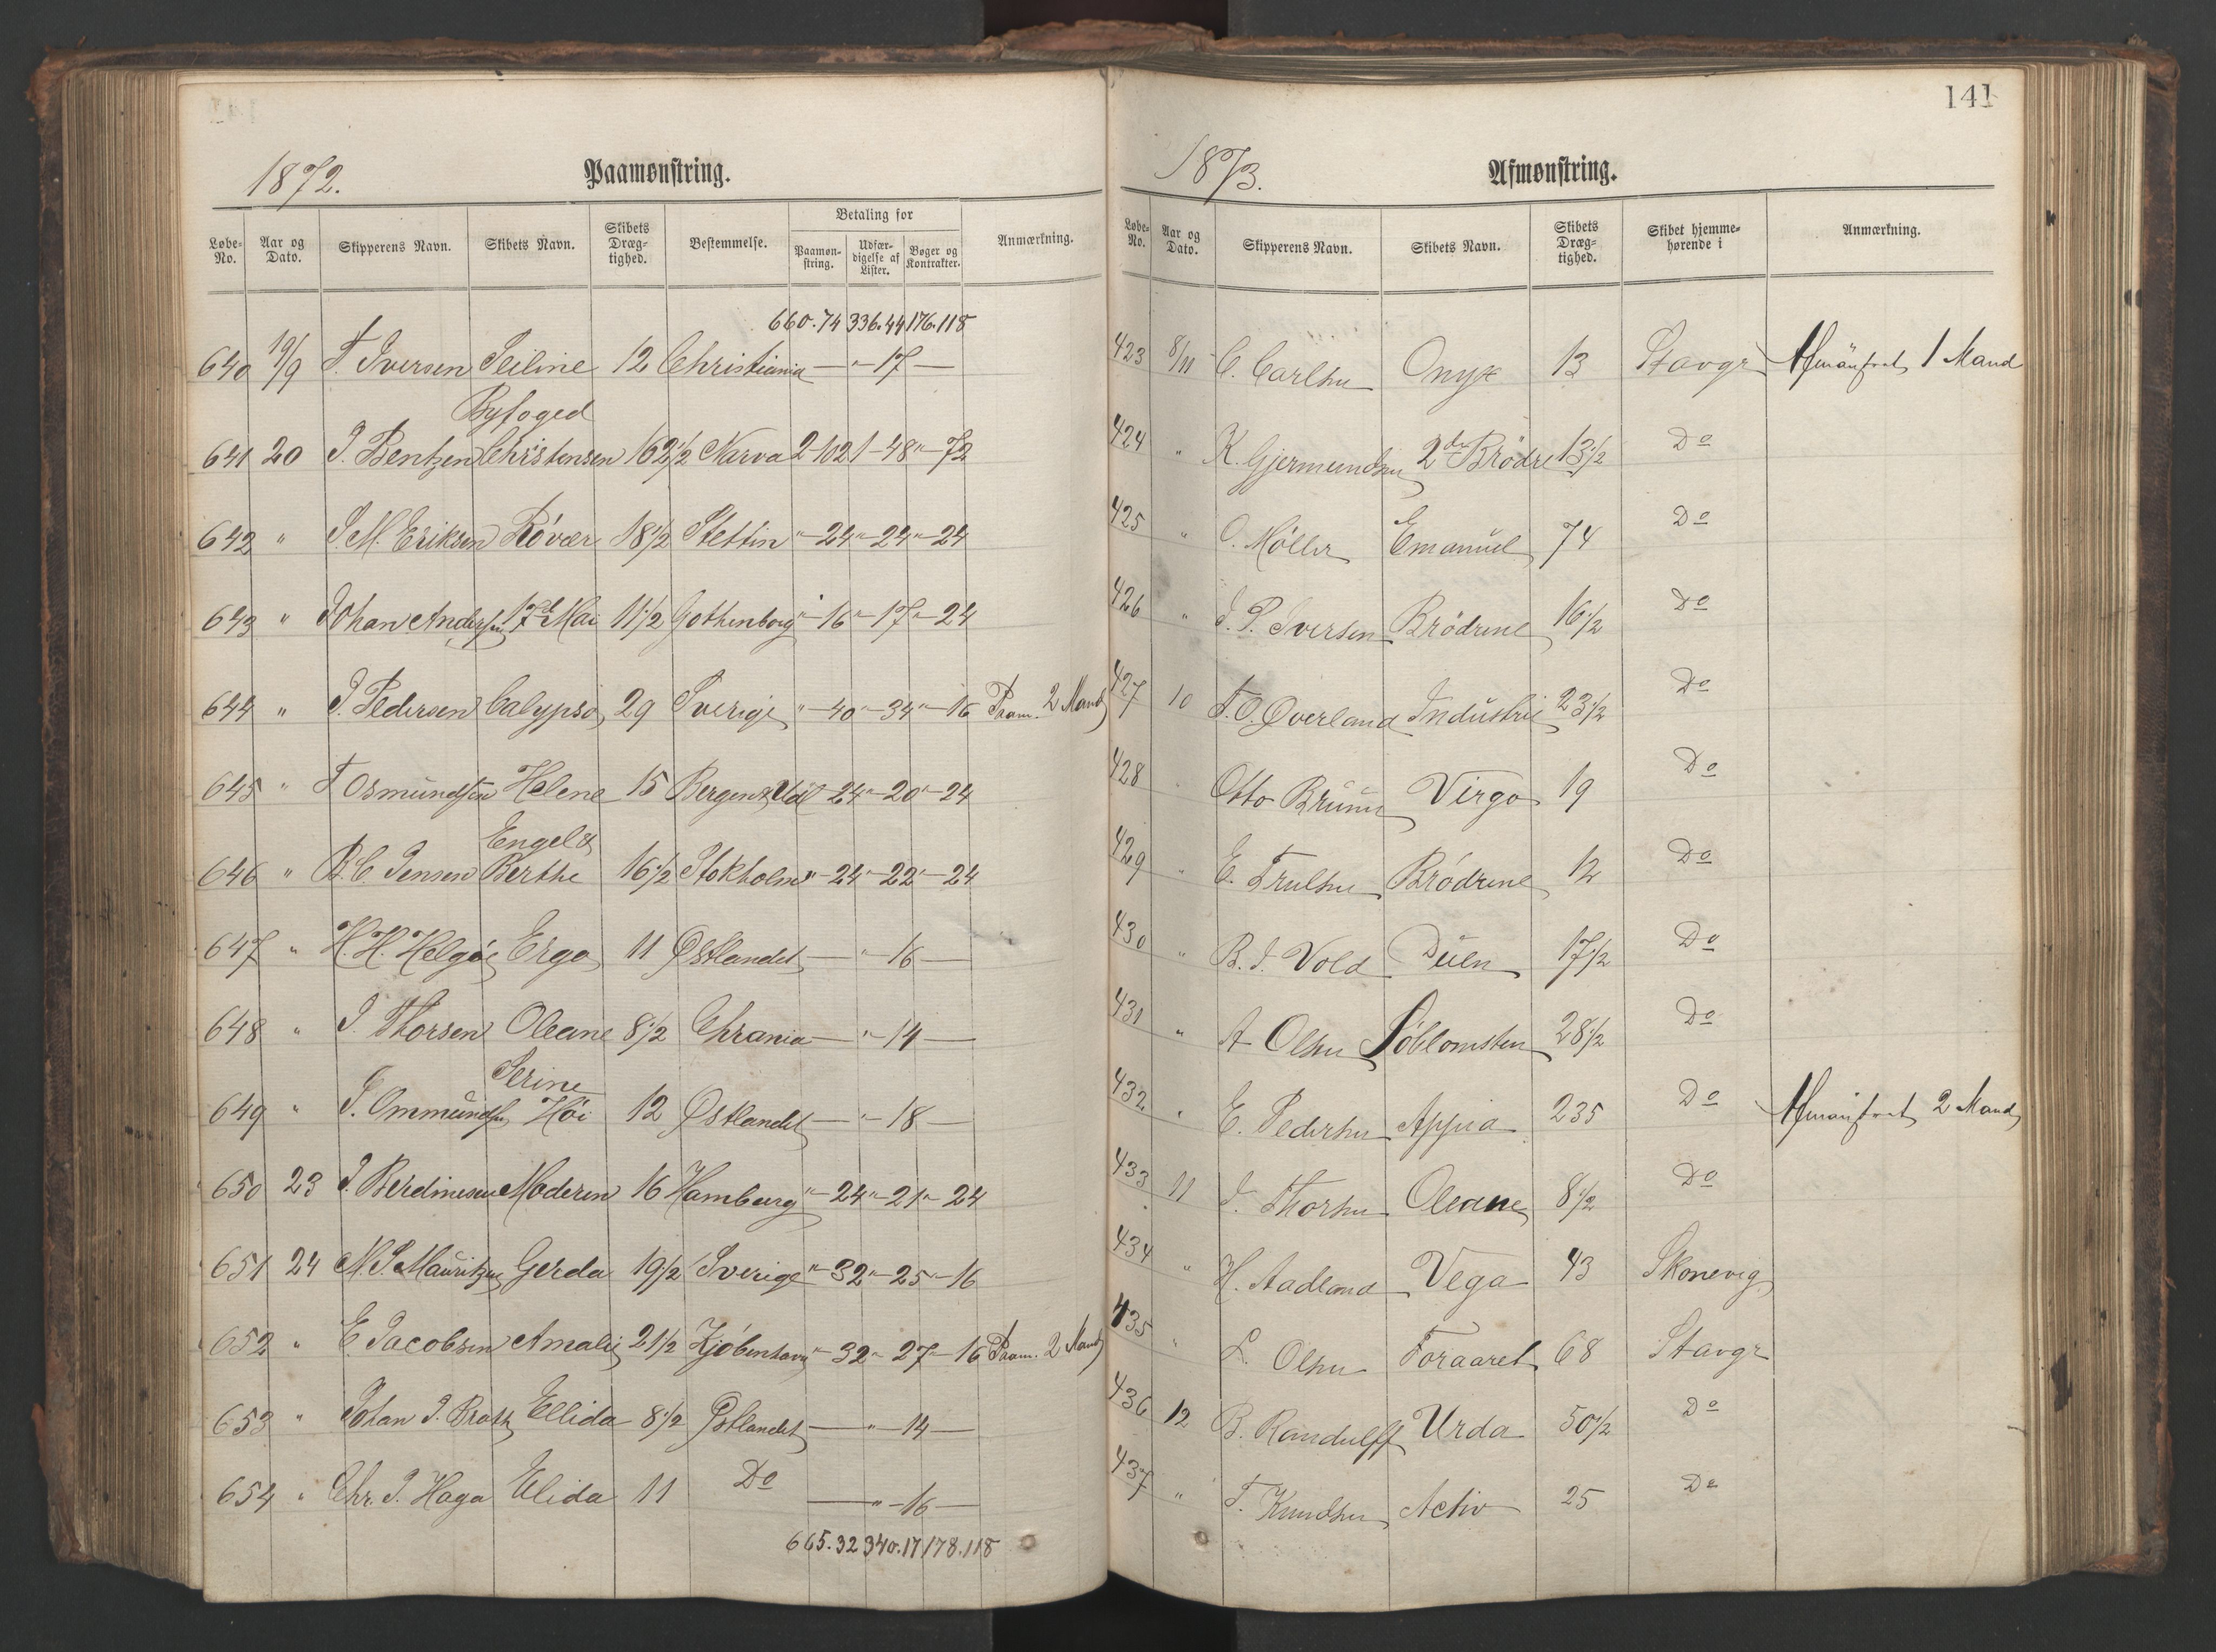 1872. Paamønstring.
Betaling for
Løbe-No. Aar og Dato. Skipperens Navn. Skibets Navn. Skibets Dræg-tighed. Bestemmelse. Paamøn-string. Udfær-digelse af Lister. Bøger og Kontrakter. Anmærkning.
660.74 336.44 176.118
640 19/9 T. Iversen Seiline 12 Christiania — " - 17 —
Byfoged
641 20 J. Bentzen Christensen 162 1/2 Narva 2-102 1-48 "-72
642 " S. M. Eriksen Röver 18 1/2 Stettin "-24 "-24 "-24
643 " Johan Andersen 17d Mai 11 1/2 Gothenborg "-16 "-17 "-24
644 " J. Pedersen Calypso 29 Sverige "-40 "-34 "-16 Paam. 2 Mand
645 " T Osmundsen Helene 15 Bergen & Udl "-24 "-20 "-24
Engel &
646 " B. C. Jensen Berthe 16 1/2 Stokholm "-24 "-22 "-24
647 " H. H. Helgöe Ergo 11 Østlandet — "-16 —
648 " J. Thorsen Oleane 8 1/2 Chrania — "-14 —
Serine
649 " J. Ommundsen Höi 12 Østlandet — "-18 —
650 23 J. Berdinesen Moderen 16 Hamburg "-24 "-21 "-24
651 24 M. S. Mauritzen Gerda 19 1/2 Sverige "-32 "-25 "-16
652 " E. Jacobsen Amalie 21 1/2 Kjöbenhavn "-32 "-27 "-16 Paam. 2 Mand
653 " Johan J. Ellida 8 1/2 Østlandet — "-14 —
654 " Chr. J. Haga Elida 11 Do — "-16 —
665.32 340.17 178.118
141
1873. Afmønstring.
Løbe-No. Aar og Dato. Skipperens Navn. Skibets Navn. Skibets Dræg-tighed. Skibet hjemme-hørende i Anmærkning.
423 8/11 C. Carlsen Onyx 13 Stavgr Afmönstret 1 Mand
424 " K. Gjermundsen 2de Brödre 13 1/2 Do
425 " O. Möller Emanuel 74 Do
426 " J. P. Iversen Brödrene 16 1/2 Do
427 10 T. O. Qverland Industrie 23 1/2 Do
428 " Otto Bruun Virgo 19 Do
429 " E. Trulsen Brödrene 12 Do
430 " B. J. Vold Duen 17 1/2 Do
431 " A Olsen Söblomsten 28 1/2 Do
432 " E. Pedersen Appia 235 Do Afmönstret 2 Mand
433 11 J. Thorsen Oleane 8 1/2 Do
434 " H. Aadland Vega 43 Skonevig
435 " L. Olsen Foraaret 68 Stavgr
436 12 B. Randulff Urda 50 1/2 Do
437 " T. Knudsen Activ 25 Do